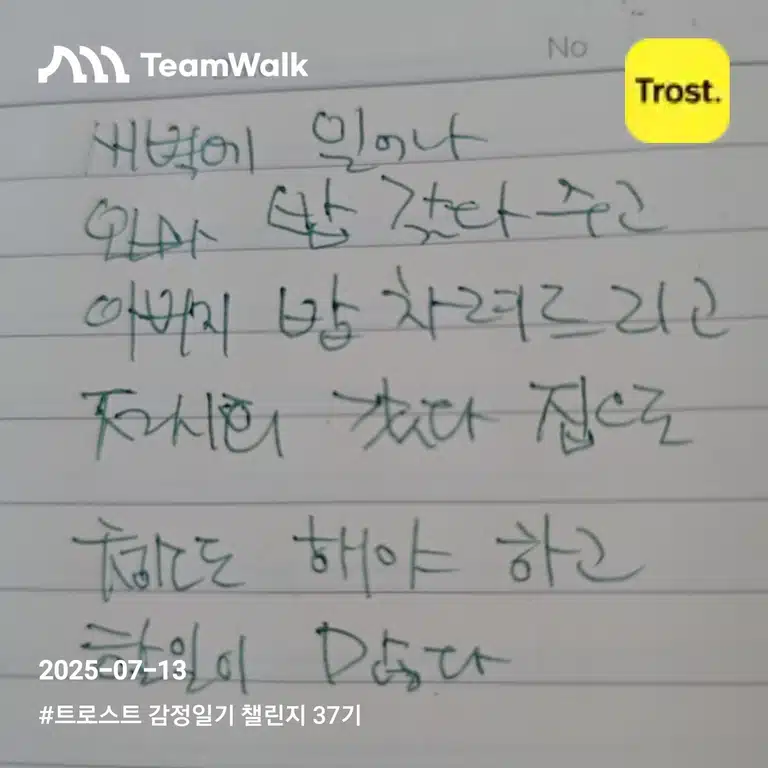 TeamWalk
No
Trost.
새벽에 일어나
엄마 밥 갖다 주고
아버지 밥 차려드리고
갔다 집으로
해야 하고
할일이 많다
2025-07-13
#트로스트 감정일기 챌린지 37기